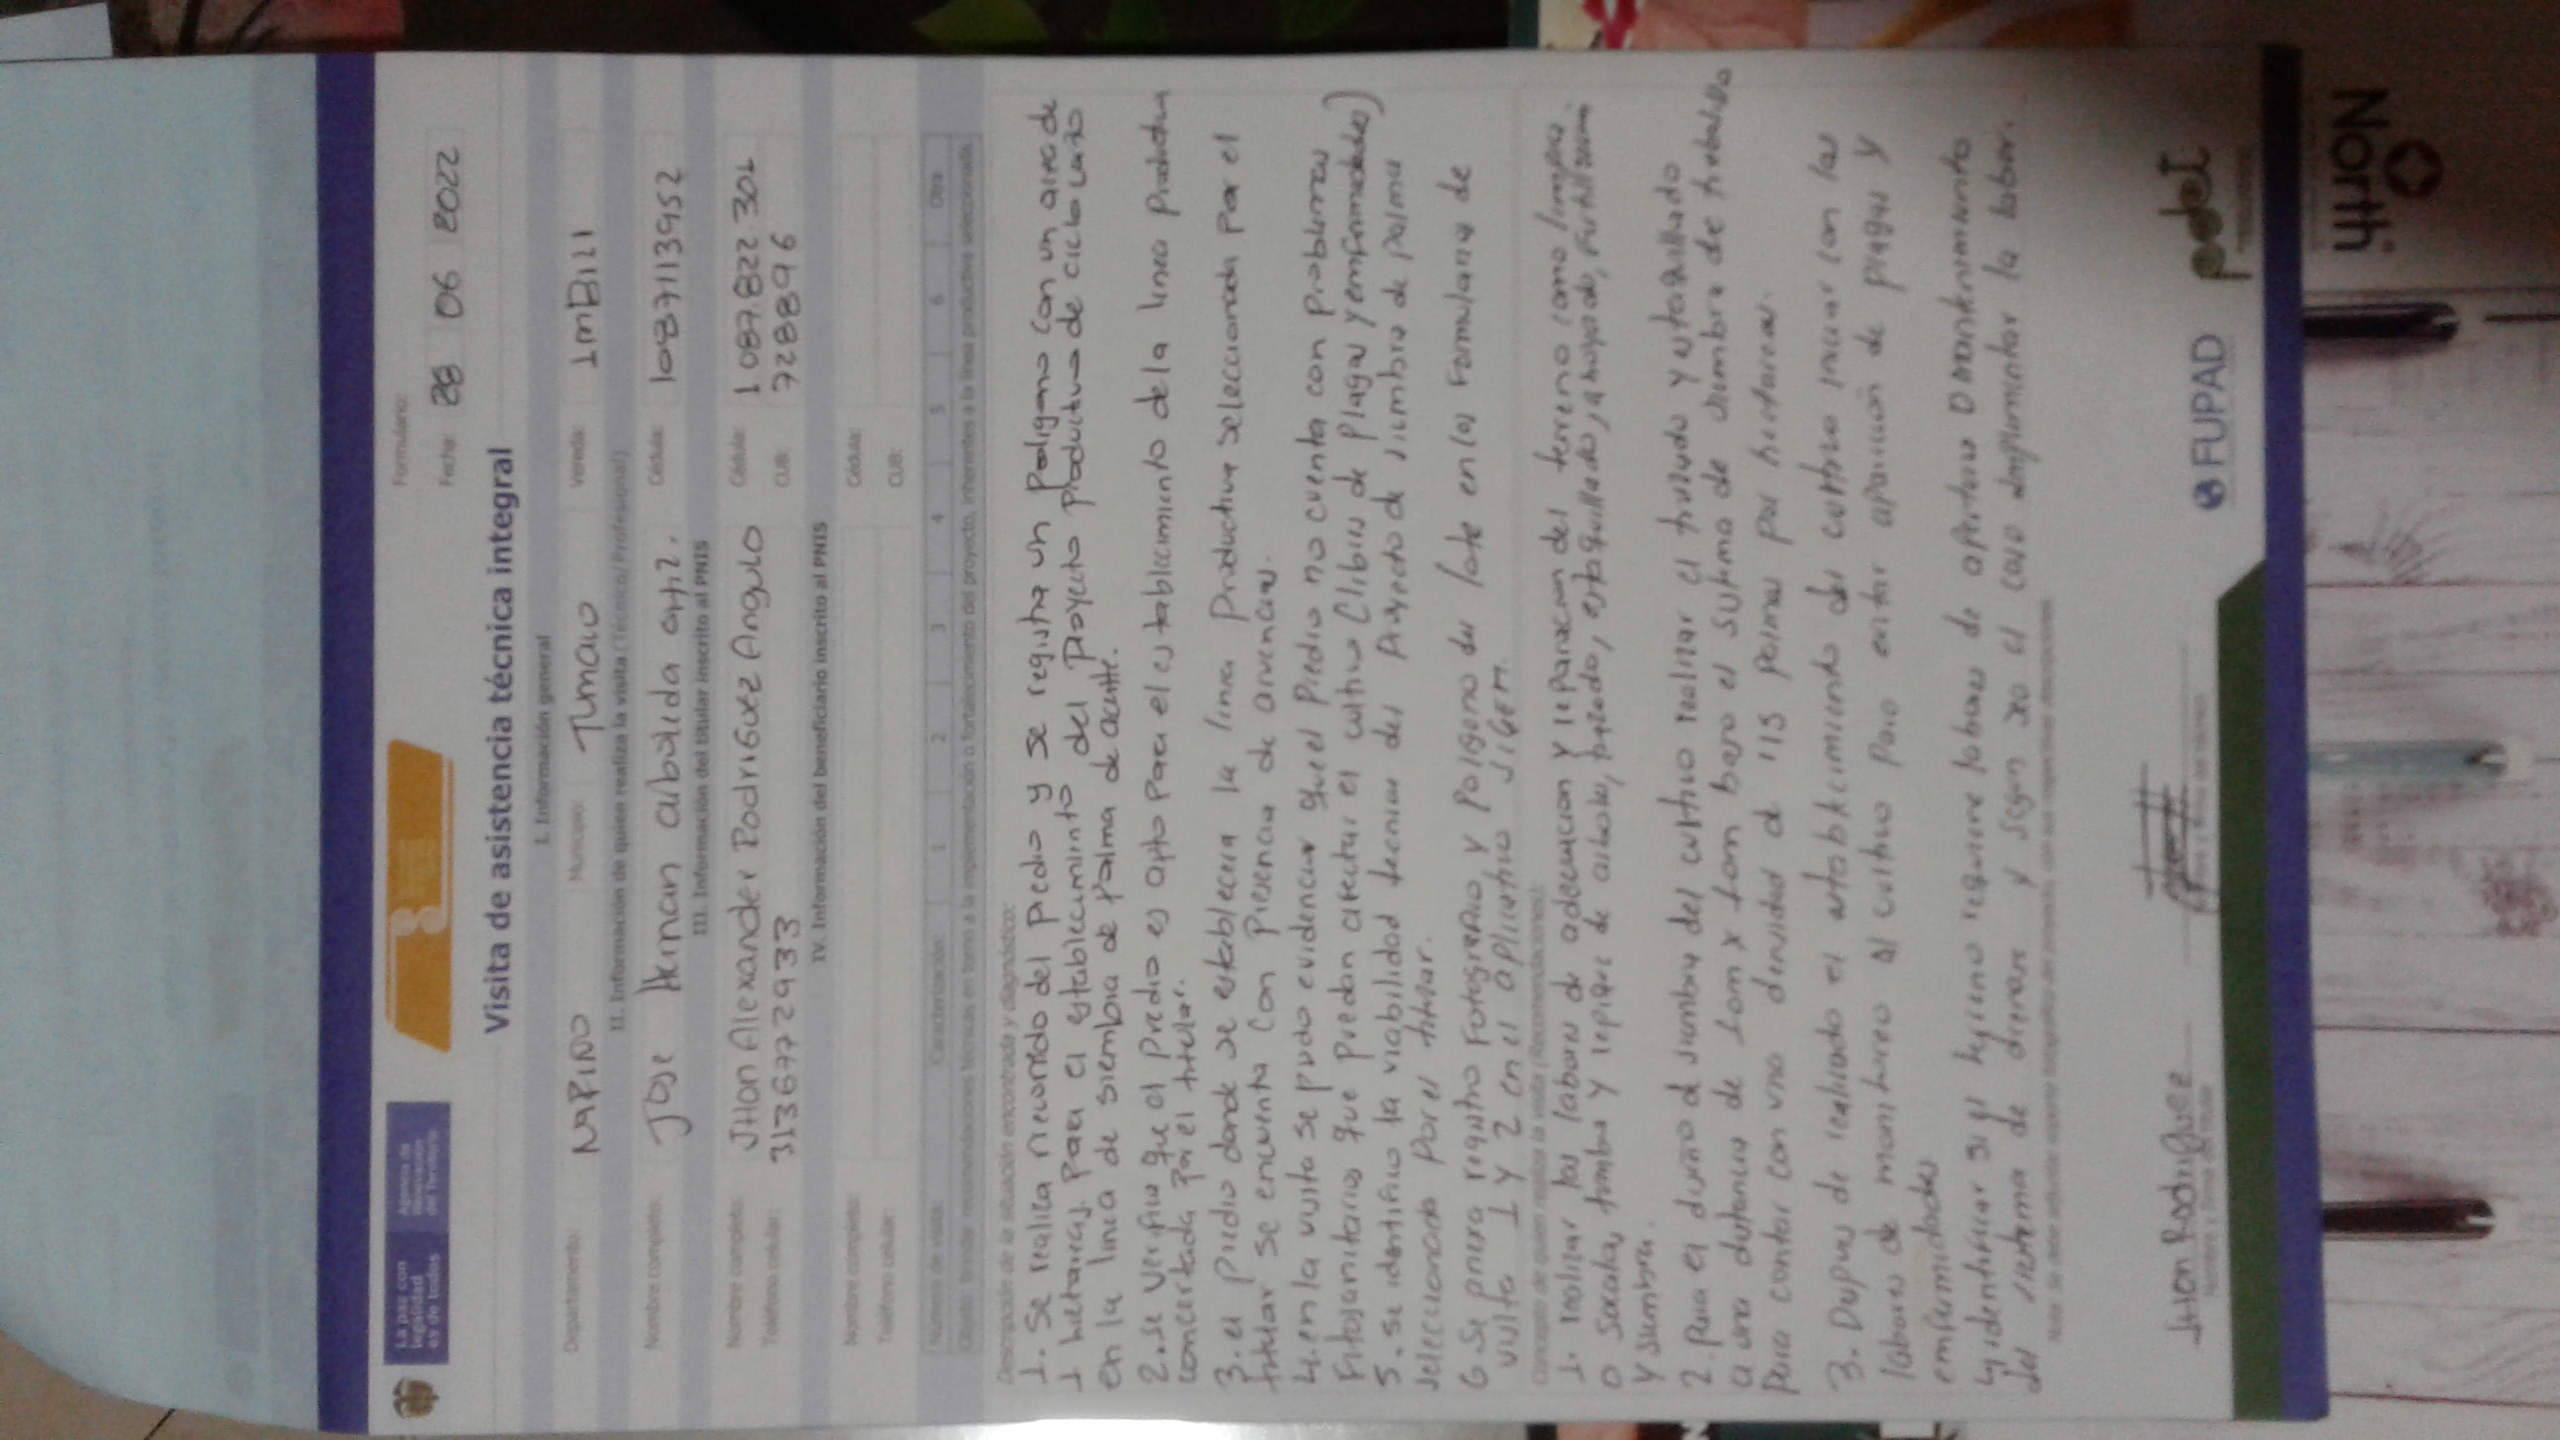 La paz con
legalidad
es de todos
Agencia de
Renovación
del Territorio
Formulario:
Fecha: 28 06 2022
Visita de asistencia técnica integral
I. Información general
Departamento: NARIÑO Municipio: Tumaco Vereda: ImBILI
II. Información de quien realiza la visita (Técnico/ Profesional)
Nombre completo: Jose Hernan arboleda ortiz. Cédula: 1087113952
III. Información del titular inscrito al PNIS
Nombre completo: JHon Alexander Rodriguez Angulo Cédula: 1.087.822.301
Teléfono celular: 3136772933 CUB: 728896
IV. Información del beneficiario inscrito al PNIS
Nombre completo: Cédula:
Teléfono celular: CUB:
Número de visita: Caracterización: 1 2 3 4 5 6 Otra
Objeto: Brindar recomendaciones técnicas en torno a la implementación o fortalecimiento del proyecto, inherentes a la línea productiva seleccionada.
Descripción de la situación encontrada y diagnóstico:
1. Se realica recorrido del Predio y se registra un Poligono con un area de
1 hetareas. Para el establecimiento del Proyecto Productivo de ciclo Largo
en la linea de siembra de Palma de aceite.
2. se verifico que el Predio es apto Para el establecimiento de la linea Productiva
concertada por el titular.
3. el Predio donde se establecera la linea Productiva seleccionada Por el
titular se encuenta con Precencia de arvencias.
4. en la visita se pudo evidenciar que el Predio no cuenta con problemas
Fitosanitarios que puedan afectar el cultivo (libres de Plagas y enfermedades)
5. se identifico la viabilidad tecnica del Proyecto de siembra de palma
seleccionado por el titular.
6 Se genera registro Fotografico, y Poligono del lote en los Formularios de
visita 1 y 2 en el aplicativo SIGEM.
Concepto de quien realiza la visita (Recomendaciones):
1. realizar las labores de adecuacion y reparacion del terreno como limpia
o socala, tumba y repique de arboles, trazado, estaquillado, ahoyado, fertilizacion
y siembra.
2. para el diseño de siembra del cultivo realizar el trazado y estaquillado
a una distancia de 10m x 10m bajo el sistema de siembra de tresbolillo
para contar con una densidad de 115 palmas por hectareas.
3. Despues de realizado el establecimiento del cultivo iniciar con las
labores de monitoreo al cultivo para evitar aparicion de plagas y
enfermedades
4. identificar si el terreno requiere labores de apertura o mantenimiento
del sistema de drenare y segun sea el caso implementar la labor.
Nota: Se debe adjuntar soporte fotográfico del proyecto, con sus respectivas descripciones
JHon Rodriguez
Nombre y firma del titular
Nombre y firma del técnico
FUPAD
pdet
North